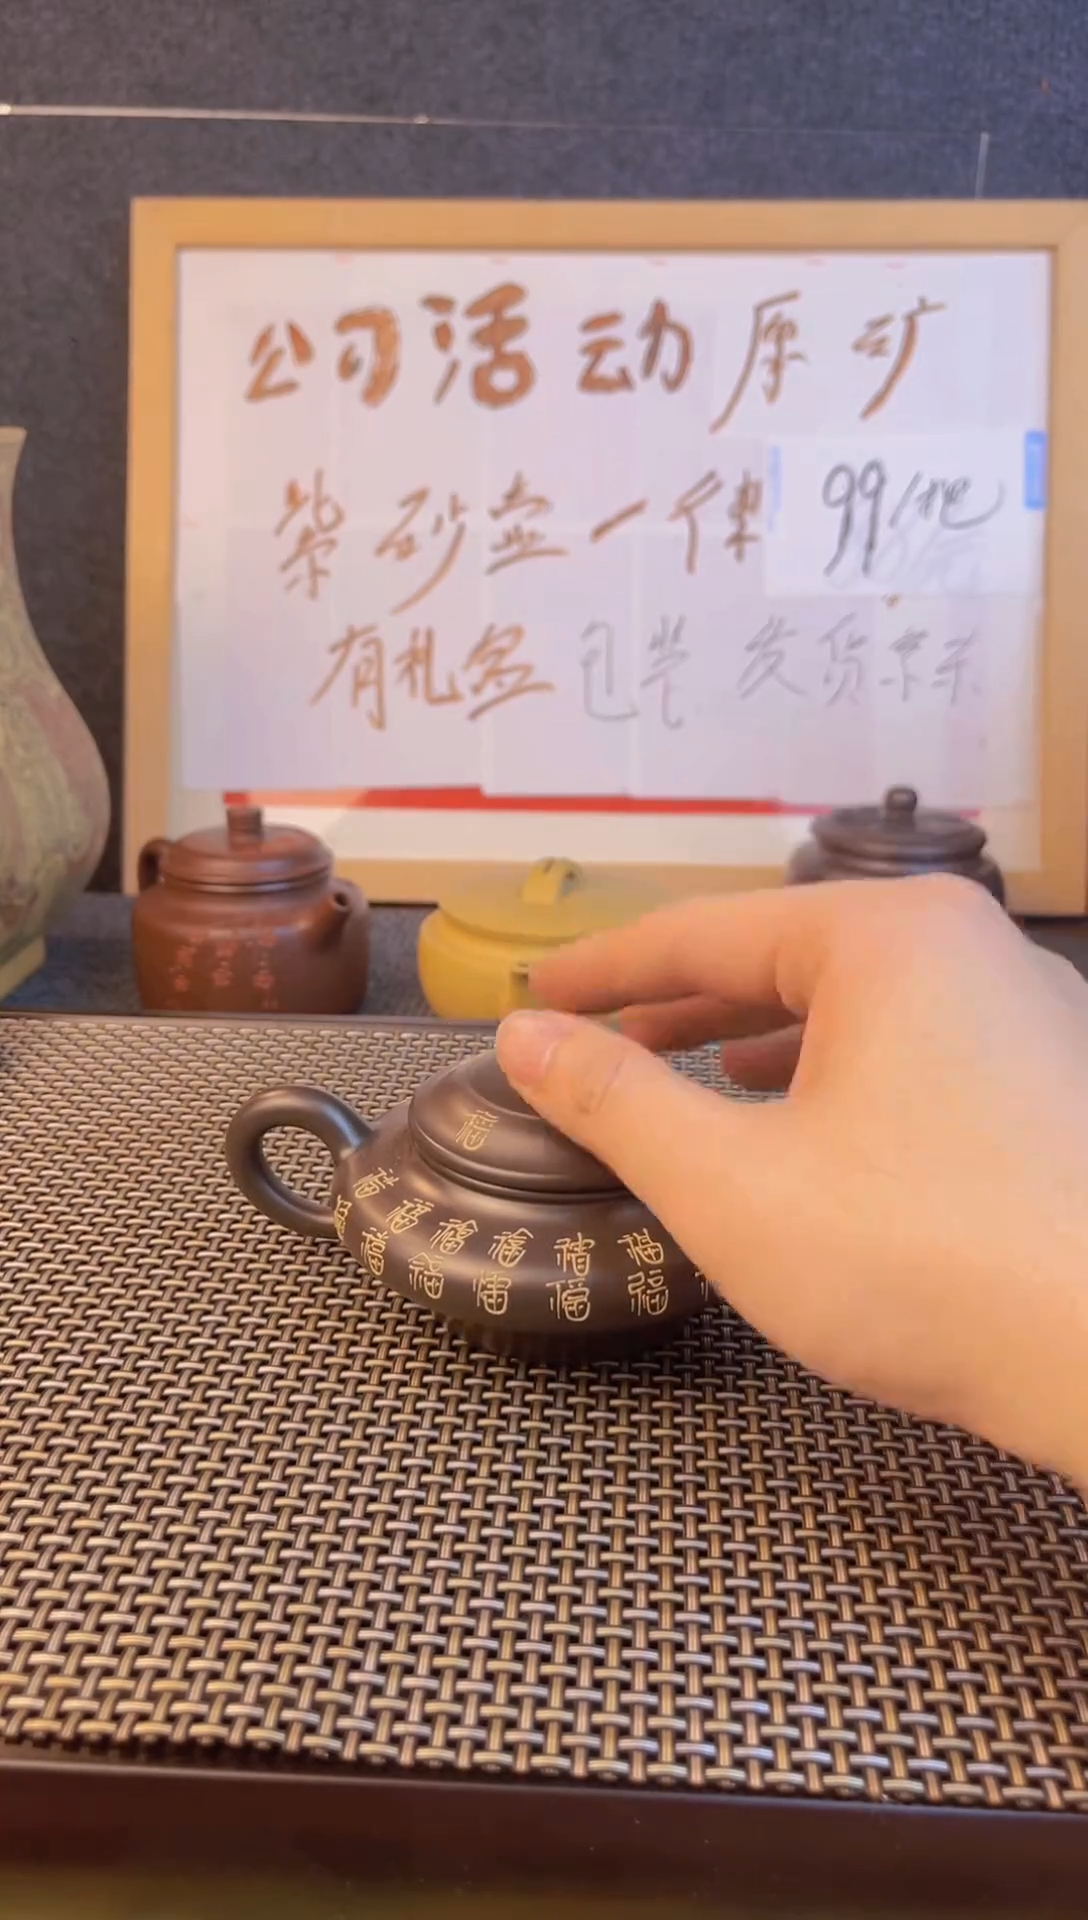 公司活动原矿
紫砂壶一律 99/把
有礼盒包装 发货
福
福 福 福 福 福 福
福 福 福 福 福